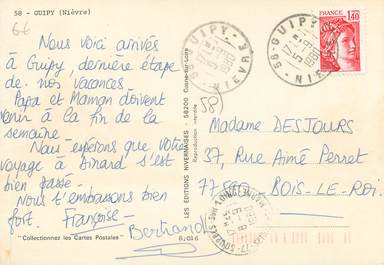 58 - GUIPY (Nièvre)
Nous voici arrivés
à Guipy, dernière étape
de nos vacances
Papa et Maman doivent
venir à la fin de la
semaine.
Nous espérons que votre
voyage à Dinard s'est
bien passé.
Nous t'embrassons bien
fort. Françoise -
Bertrand
"Collectionnez les Cartes Postales"
LES EDITIONS NIVERNAISES - 58200 Cosne-sur-Loire
Reproduction interdite
58
58-GUIPY
NIEVRE
58-GUIPY
NIEVRE
FRANCE
1,40
Madame DESJOURS
37, Rue Aimé Perret
BOIS-LE-ROI